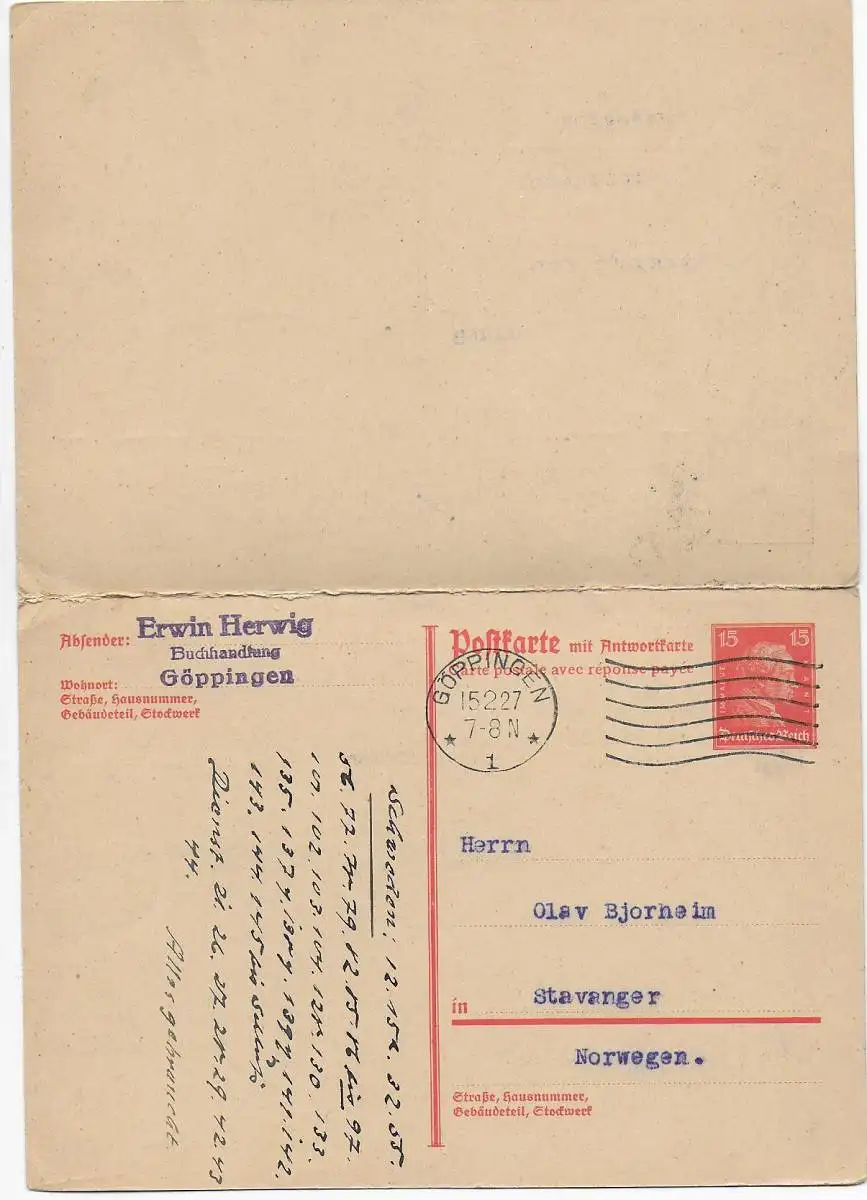 Absender: Erwin Herwig
Buchhandlung
Wohnort: Göppingen
Straße, Hausnummer,
Gebäudeteil, Stockwerk
Postkarte mit Antwortkarte
Carte postale avec réponse payée
15 15
Deutsches Reich
GÖPPINGEN
15.2.27
7-8 N
1
Herrn
Olav Bjorheim
in Stavanger
Norwegen.
Straße, Hausnummer,
Gebäudeteil, Stockwerk
Schweden: 12. 32. 55.
77. 79. 82. bis 97.
102. 103. 130. 133.
135. 141. 142.
143. 144. 145 bis
Dienst. 26. 27. 29. 42. 43
44.
Alles gebraucht.